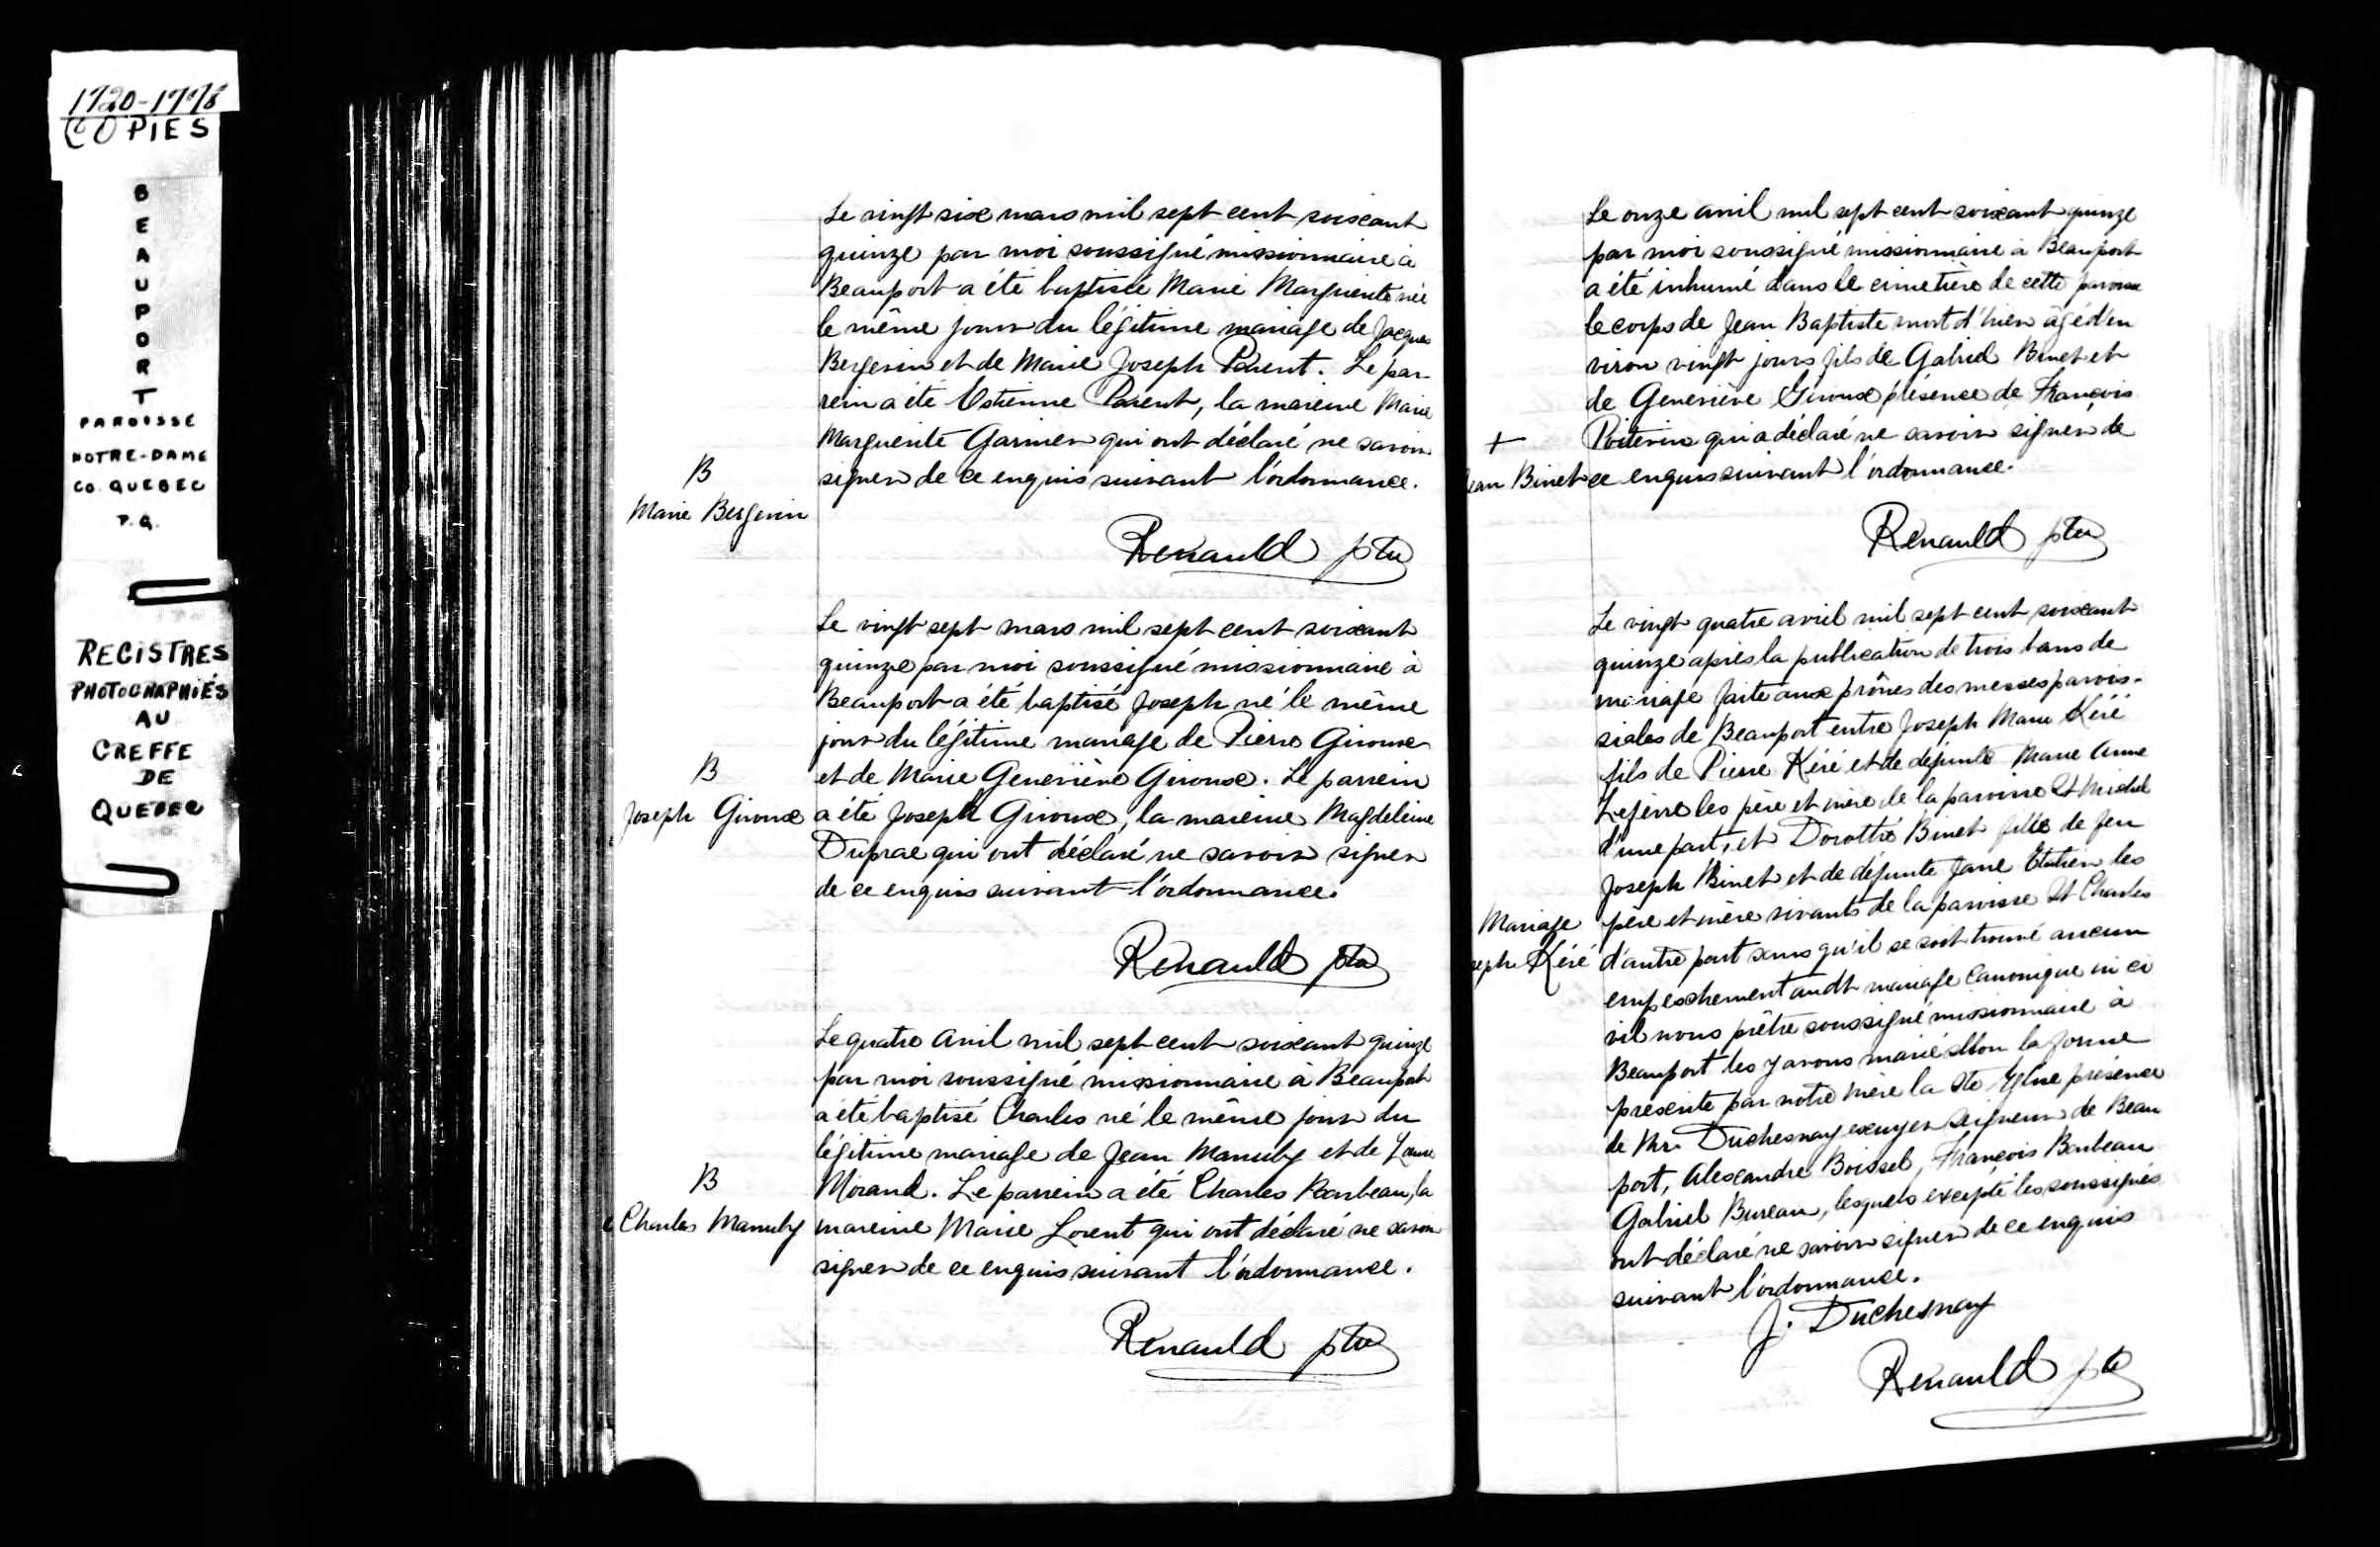 1720-1778
COPIES
BEAUPORT
PAROISSE
NOTRE-DAME
CO. QUEBEC
P.Q.
REGISTRES
PHOTOGRAPHIÉS
AU
GREFFE
DE
QUEBEC
Le vingt six mars mil sept cent soixant
quinze par moi soussigné missionnaire à
Beauport a été baptisée Marie Marguerite née
le même jour du légitime mariage de Jacques
Bergevin et de Marie Joseph Parent. Le par-
rein a été Estienne Parent, la mareine Marie
Marguerite Garnier qui ont déclaré ne savoir
signer de ce enquis suivant l'ordonnance.
B
Marie Bergevin
Renauld ptre
Le vingt sept mars mil sept cent soixant
quinze par moi soussigné missionnaire à
Beauport a été baptisé Joseph né le même
jour du légitime mariage de Pierre Giroux
et de Marie Geneviève Giroux. Le parrein
a été Joseph Giroux, la mareine Magdeleine
Duprac qui ont déclaré ne savoir signer
de ce enquis suivant l'ordonnance.
B
Joseph Giroux
Renauld ptre
Le quatre avril mil sept cent soixant quinze
par moi soussigné missionnaire à Beauport
a été baptisé Charles né le même jour du
légitime mariage de Jean Manuby et de Louise
Morand. Le parrein a été Charles Barbeau, la
mareine Marie Lorent qui ont déclaré ne savoir
signer de ce enquis suivant l'ordonnance.
B
Charles Manuby
Renauld ptre
Le onze avril mil sept cent soixant quinze
par moi soussigné missionnaire à Beauport
a été inhumé dans le cimetière de cette paroisse
le corps de Jean Baptiste mort d'hier âgé d'en
viron vingt jours fils de Gabriel Binet et
de Geneviève Giroux présence de François
Poitevin qui a déclaré ne savoir signer de
ce enquis suivant l'ordonnance.
+
Jean Binet
Renauld ptre
Le vingt quatre avril mil sept cent soixant
quinze après la publication de trois bans de
mariage faite aux prônes des messes parois-
siales de Beauport entre Joseph Marie Kéré
fils de Pierre Kéré et de défunte Marie Anne
Lefevre les père et mère de la paroisse St Michel
d'une part, et Dorotté Binet fille de feu
Joseph Binet et de défunte Jane les
père et mère vivants de la paroisse St Charles
d'autre part sans qu'il se soit trouvé aucun
empeschement audt mariage canonique ni ci
vil nous prêtre soussigné missionnaire à
Beauport les y avons marié selon la forme
prescrite par notre mère la Ste Eglise présence
de Mr. Duchesnay escuyer seigneur de Beau
port, Alexandre Boissel, François Barbeau
Gabriel Bureau, lesquels excepté les soussignés
ont déclaré ne savoir signer de ce enquis
suivant l'ordonnance.
Mariage
seph Kéré
J. Duchesnay
Renauld ptre